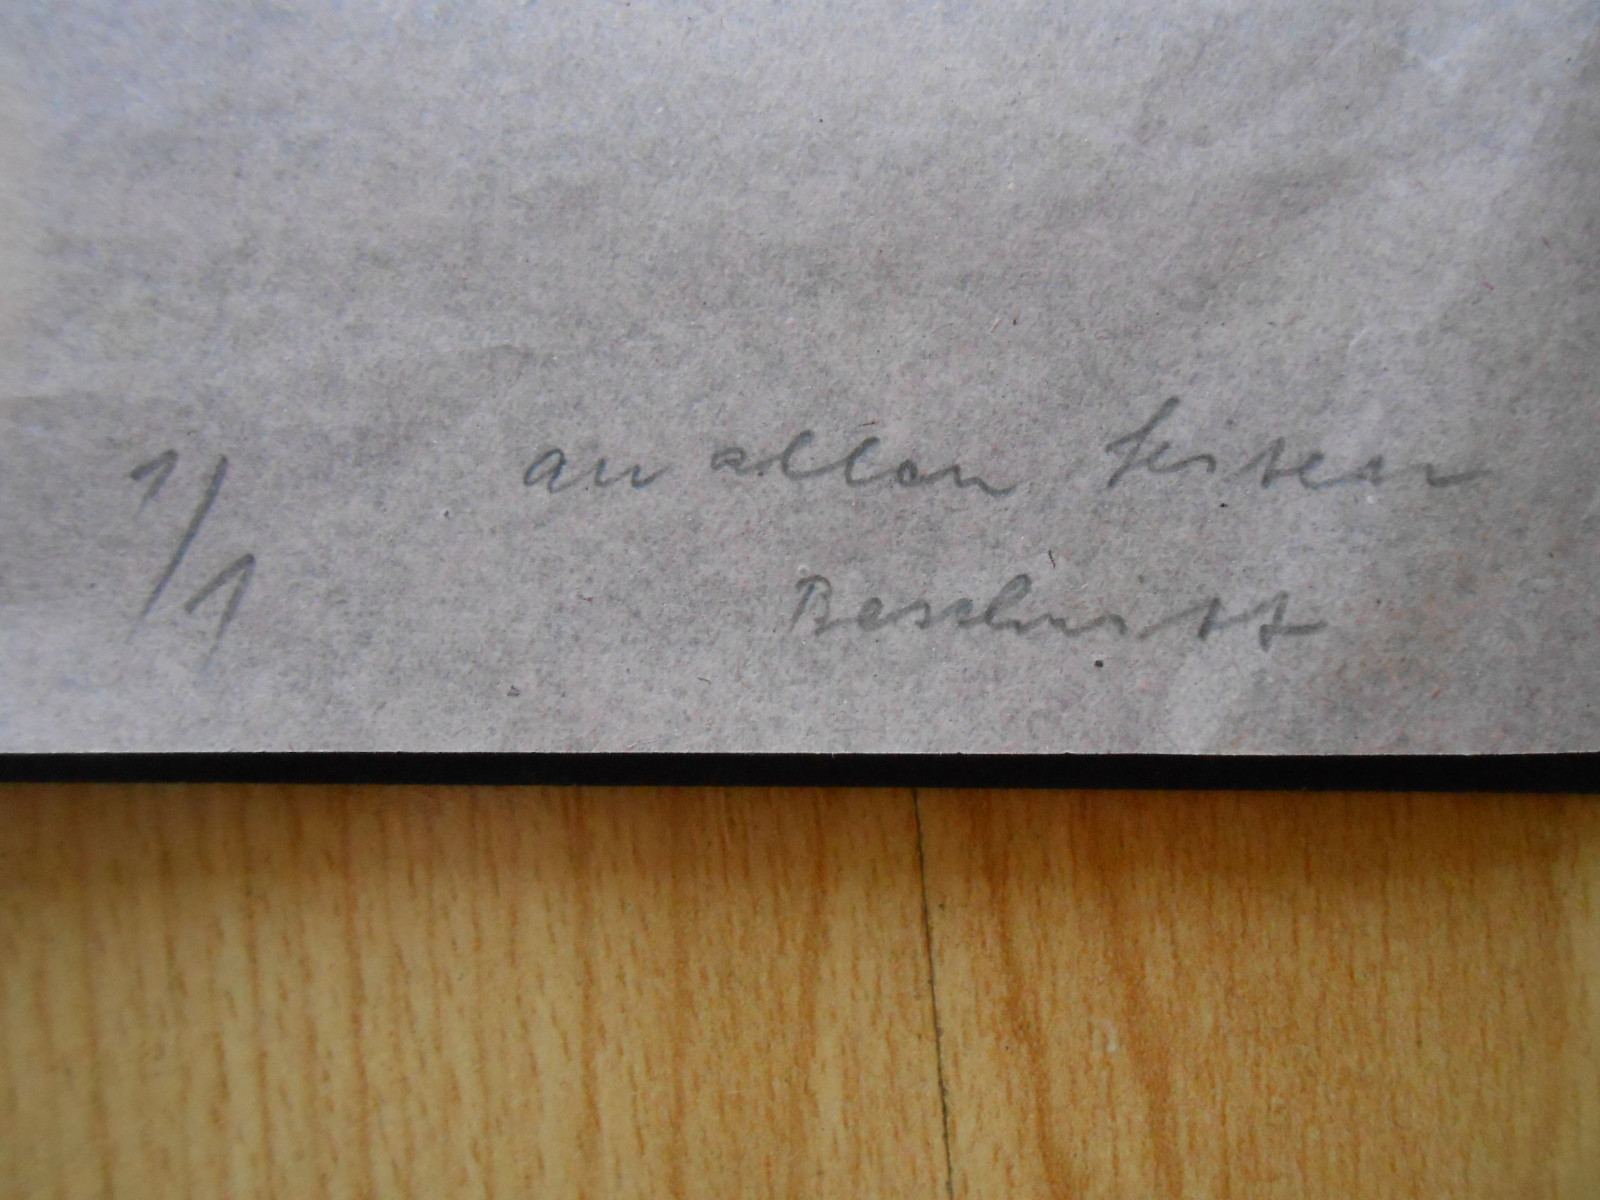 1/1 an allen Seiten
Beschnitt